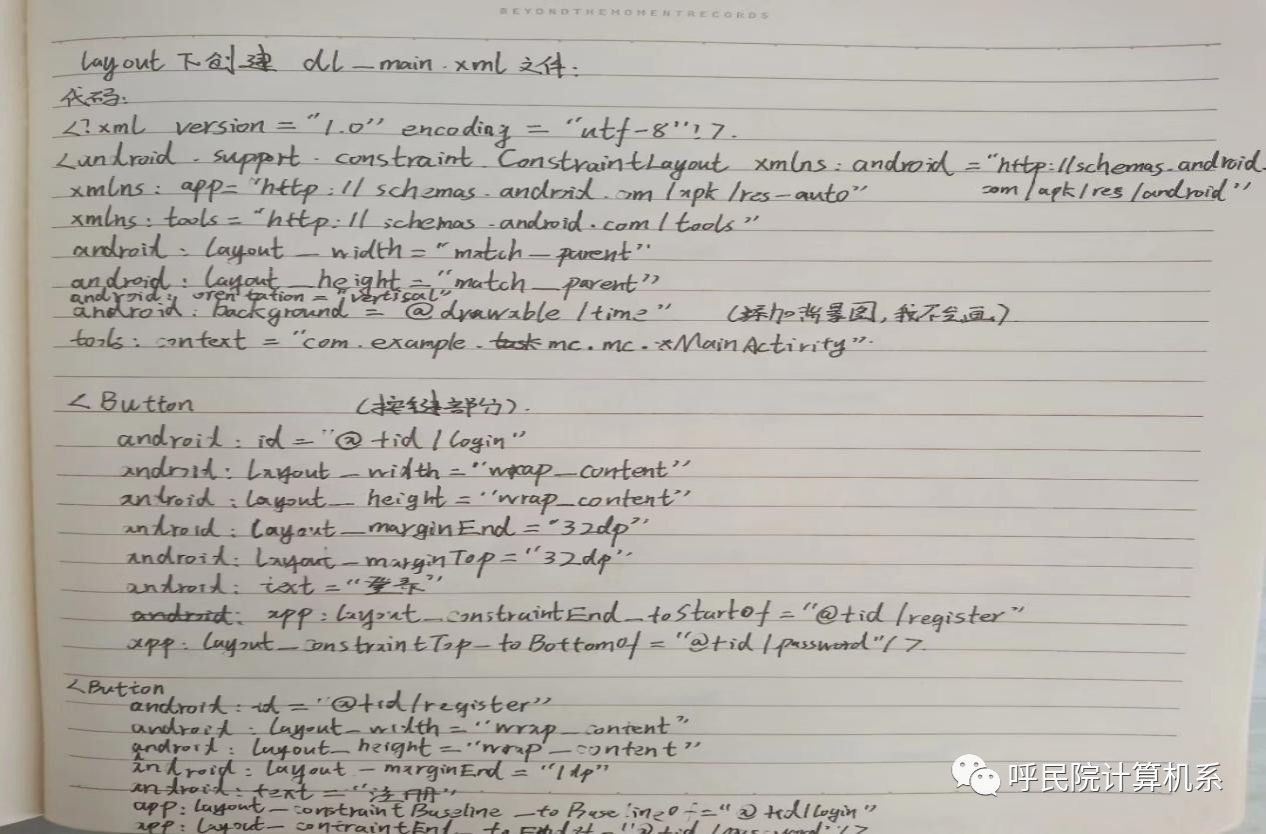 BEYONDTHEMOMENTRECORDS
layout 下创建 dl_main.xml 文件:
代码:
<?xml version = "1.0" encoding = "utf-8"?>.
<android.support.constraint.ConstraintLayout xmlns:android = "http://schemas.android.
com/apk/res/android"
xmlns:app= "http://schemas.android.com/apk/res-auto"
xmlns:tools = "http://schemas.android.com/tools"
android:layout_width = "match_parent"
android:layout_height = "match_parent"
android:orentation = "vertisal"
android:background = @drawable/time" (添加背景图,我不会画.)
tools:context = "com.example.mc.mc.MainActivity".
<Button (按键部分).
android:id = "@+id/login"
android:layout_width = "wrap_content"
android:layout_height = "wrap_content"
android:layout_marginEnd = "32dp"
android:layout_marginTop = "32dp"
android:text = "登录"
app:layout_constraintEnd_toStartOf = "@+id/register"
app:layout_constraintTop_toBottomOf = "@+id/password"/>.
<Button
android:id = "@+id/register"
android:layout_width = "wrap_content"
android:layout_height = "wrap_content"
android:layout_marginEnd = "1dp"
android:text = "注册"
app:layout_constraintBaseline_toBaselineOf = "@+id/login"
app:layout_contraintEnd_to
呼民院计算机系